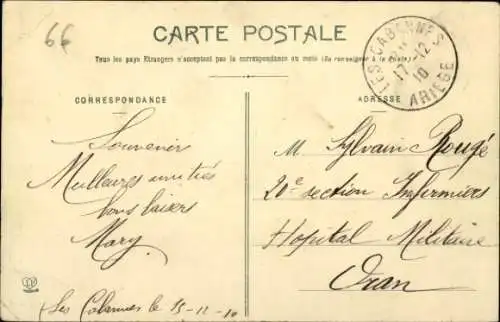 66
CARTE POSTALE
Tous les pays Etrangers n'acceptent pas la correspondance au recto (Se renseigner à la Poste)
LES CABANNES
17-12
10
ARIÈGE
CORRESPONDANCE
Souvenir
Meilleures amitiés
bons baisers
Mary
Les Cabannes le 15-12-10
ADRESSE
M Sylvain Rougé
20e section Infirmiers
Hopital Militaire
Oran